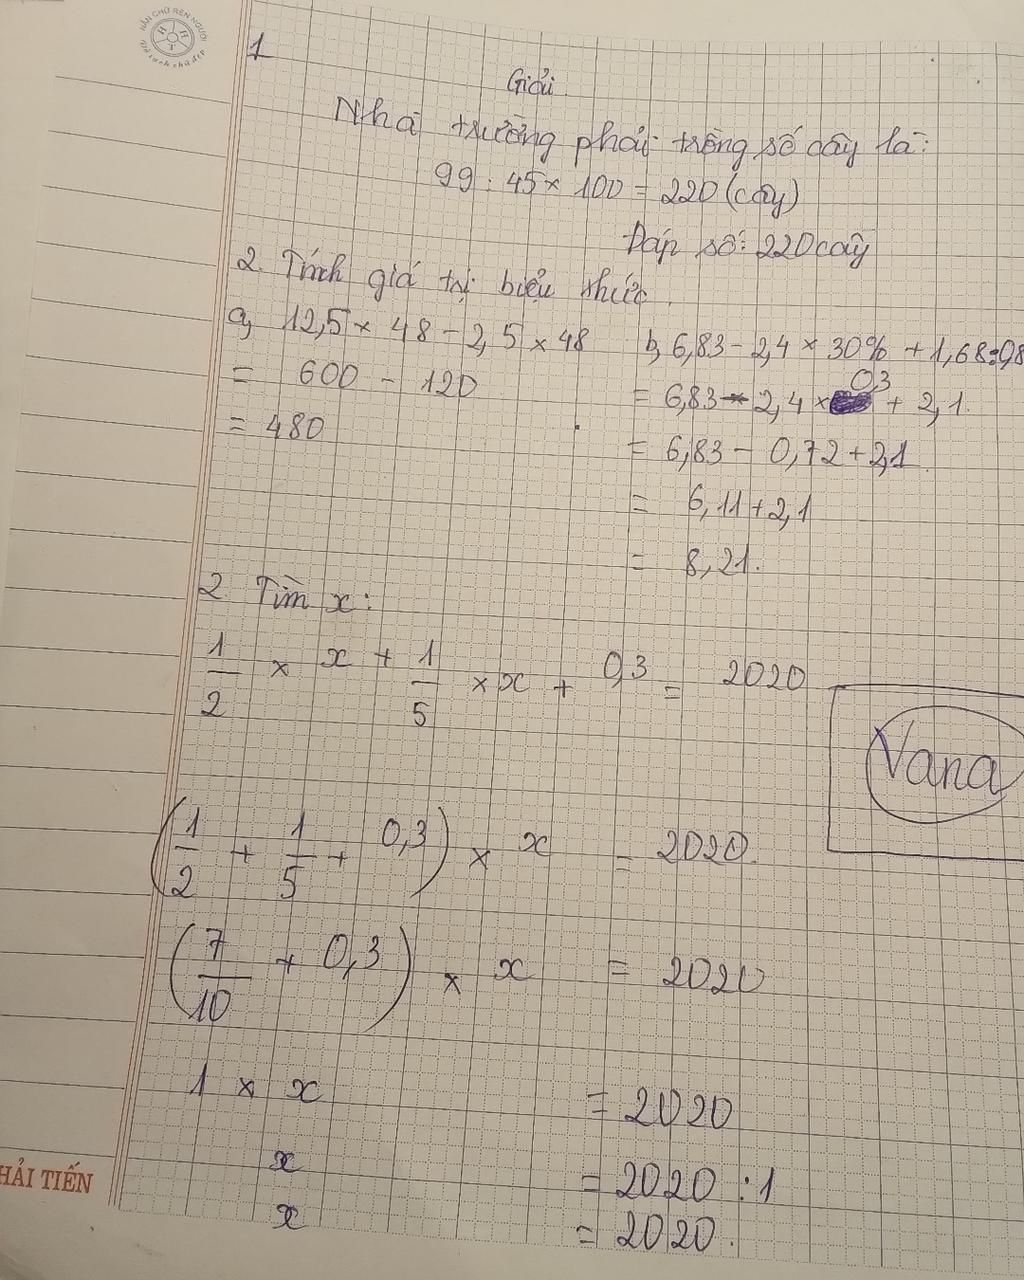 NẮN CHỮ RÈN NGƯỜI
H H T
1
Giải
Nhà trường phải trồng số cây là:
99 : 45 × 100 = 220 (cây)
Đáp số: 220 cây
2. Tính giá trị biểu thức.
a, 12,5 × 48 - 2,5 × 48
= 600 - 120
= 480
b, 6,83 - 2,4 × 30% + 1,68 : 0,8
= 6,83 - 2,4 × 0,3 + 2,1.
= 6,83 - 0,72 + 2,1
= 6,11 + 2,1
= 8,21.
2. Tìm x:
1/2 × x + 1/5 × x + 0,3 = 2020
Vana
(1/2 + 1/5 + 0,3) × x = 2020.
(7/10 + 0,3) × x = 2020
1 × x = 2020
x = 2020 : 1
x = 2020.
HẢI TIẾN